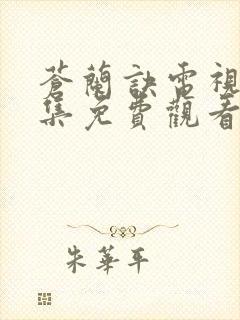 蒼蘭訣電視
集免費觀看
朱華平